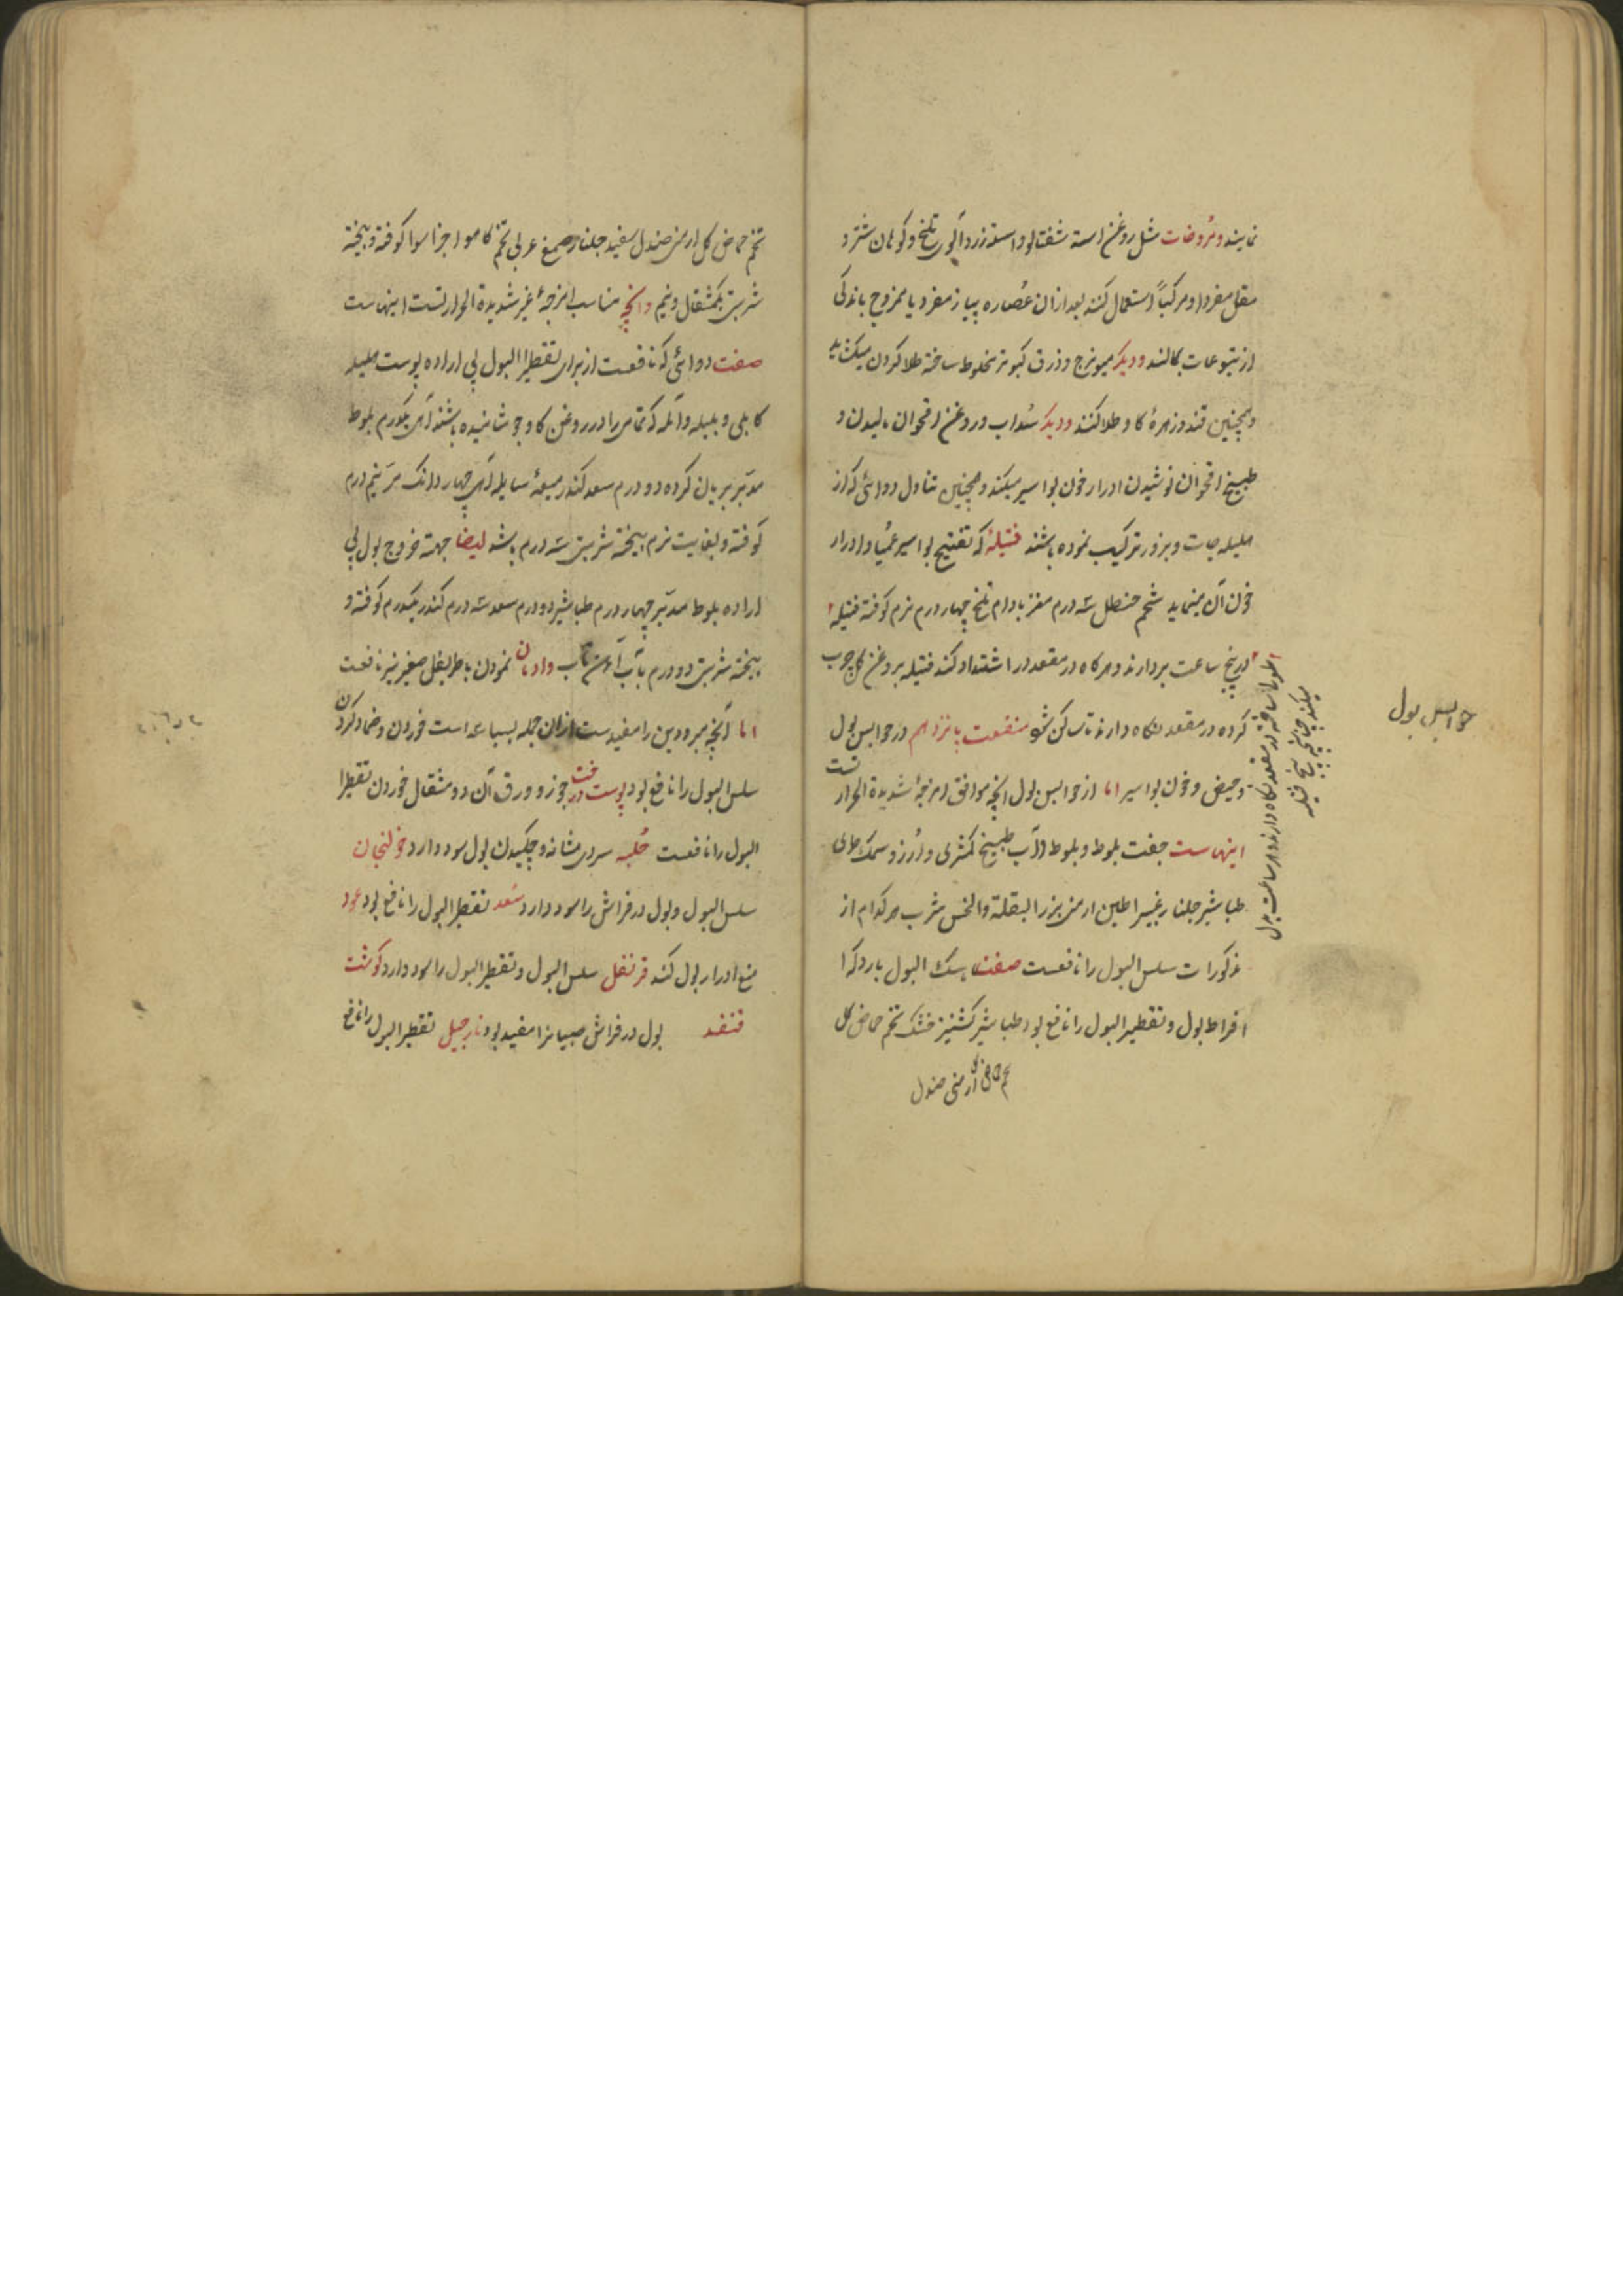 نمایند و مروخات مثل روغن استه شفتالو و استه زردآلوی تلخ و کوهان شتر و
مقل مفردا و مرکباً استعمال کنند بعد از ان عُصاره پیاز مفرد یا ممزوج باندکی
از یتوعات بمالند و دیگر میویزج و ذرق کبوتر مخلوط ساخته طلا کردن میکشاید
و همچنین قند و زهرهٔ کاو طلا کنند و دیگر سُداب و روغن اقحوان مالیدن و
طبیخ اقحوان نوشیدن ادرار خون بواسیر میکند و همچنین تناول دوائی که از
هلیله جات و بزور ترکیب نموده باشند فتیلهٔ که تفتیح بواسیر عمیا و ادرار
خون آن مینماید شحم حنظل سه درم مغز بادام تلخ چهار درم نرم کوفته فتیله
در پنج ساعت بردارند و هرکاه در مقعد درد اشتداد کند فتیله بروغن کل چرب
کرده در مقعد نکاه دارند تا ساکن شود منفعت پانزدهم در حوابس بول
و حیض و خون بواسیر اما از حوابس بول انچه موافق امزجهٔ شدیدة الحرارتست
اینهاست جفت بلوط و بلوط آب طبیخ کمثری و اُرز و سمک طری
طباشیر جلنار غبیرا طین ارمنی بزر البقلة والخس شرب هرکدام از
مذکورات سلس البول را نافعست صفت ماسک البول بارد که
افراط بول و تقطیر البول را نافع بود طباشیر کشنیز خشک تخم حماض کل
تخم حماض کل ارمنی صندل
حوابس بول
تخم حماض کل ارمنی صندل سفید جلنار صمغ عربی تخم کاهو اجزا سوا کوفته و بیخته
شربتی یکمثقال و نیم و انچه مناسب امزجهٔ غیر شدیدة الحرارتست اینهاست
صفت دوائی که نافعست از برای تقطیر البول بی اراده پوست هلیله
کابلی و بلیله و آمله که تمامی را در روغن کاو جوشانیده باشند از هر یکدرم بلوط
مدبر بریان کرده دو درم سعد کندر میعهٔ سایله از هر چهار دانک مر نیم درم
کوفته و بغایت نرم بیخته شربتی سه درم باشد ایضا جهة خروج بول بی
اراده بلوط مدبر چهار درم طباشیر دو درم سعد سه درم کندر یکدرم کوفته و
بیخته شربتی دو درم بآب آهن تاب و ادمان نمودن باطریفل صغیر نیز نافعست
اما آنچه مبرودین را مفیدست ازان جمله بسباسه است خوردن و ضماد کردن
سلس البول را نافع بود پوست درخت جوز و ورق آن دو مثقال خوردن تقطیر
البول را نافعست حُلبه سردی مثانه و چکیدن بول سود دارد خولنجان
سلس البول و بول در فراش را سود دارد سُعد تقطیر البول را نافع بود عود
منع ادرار بول کند قرنفل سلس البول و تقطیر البول را سود دارد کوشت
قنفد بول در فراش صبیان را مفید بود نارجیل تقطیر البول را نافع